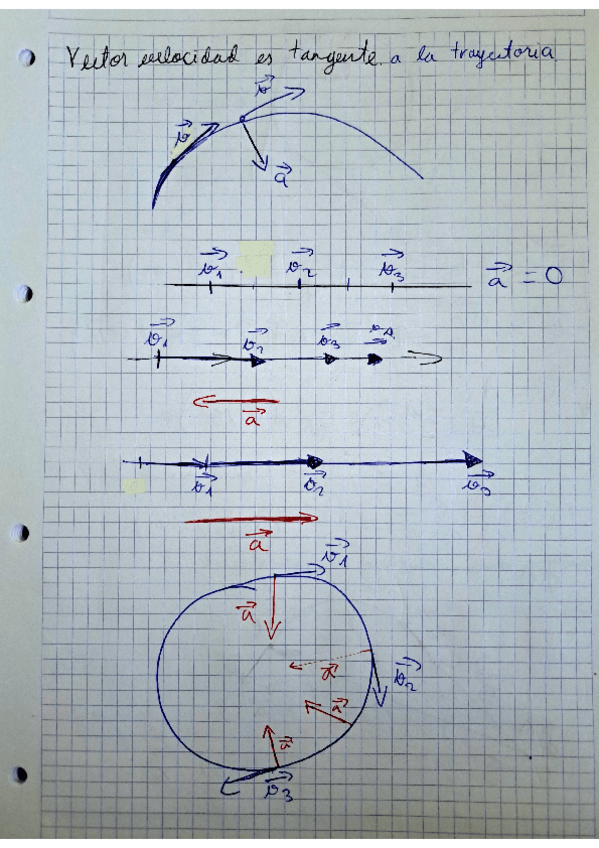 Vector velocidad es tangente a la trayectoria
v⃗
v⃗
a⃗
v⃗1 v⃗2 v⃗3 a⃗ = 0
v⃗1 v⃗2 v⃗3
a⃗
v⃗1 v⃗2 v⃗3
a⃗
v⃗1
a⃗
a⃗ v⃗2
a⃗
a⃗
v⃗3